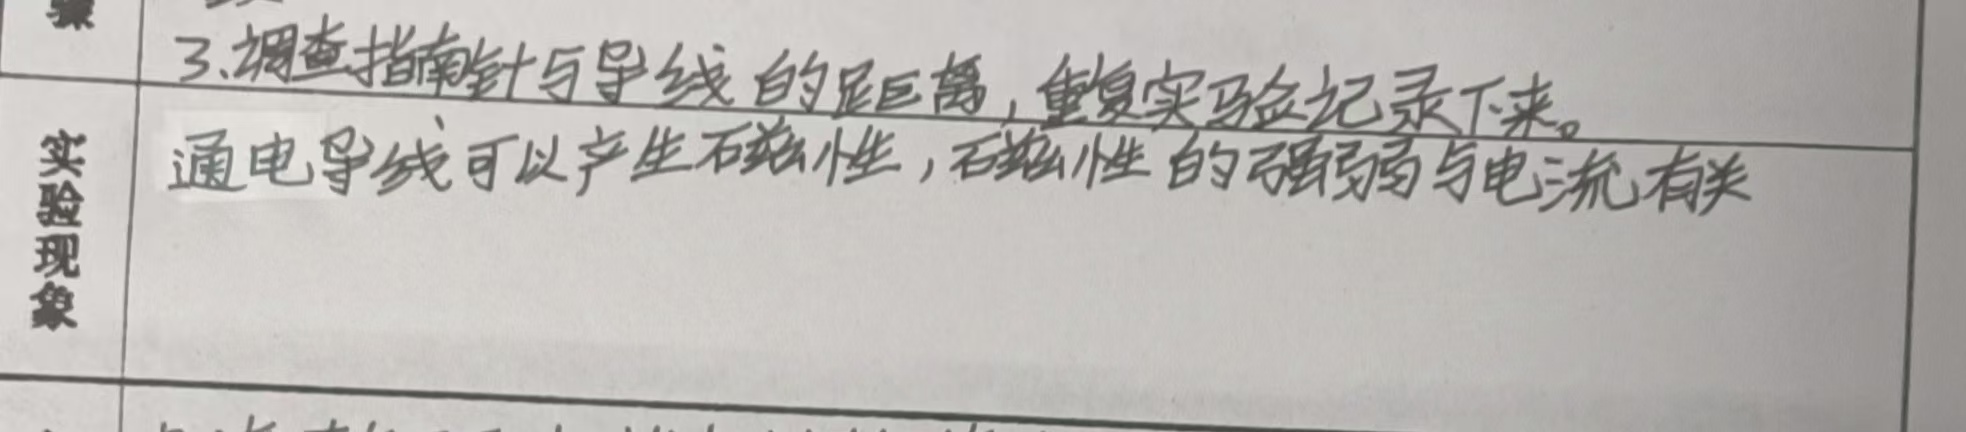 骤
3.调查指南针与导线的距离，重复实验记录下来。
实验现象
通电导线可以产生磁性，磁性的强弱与电流有关